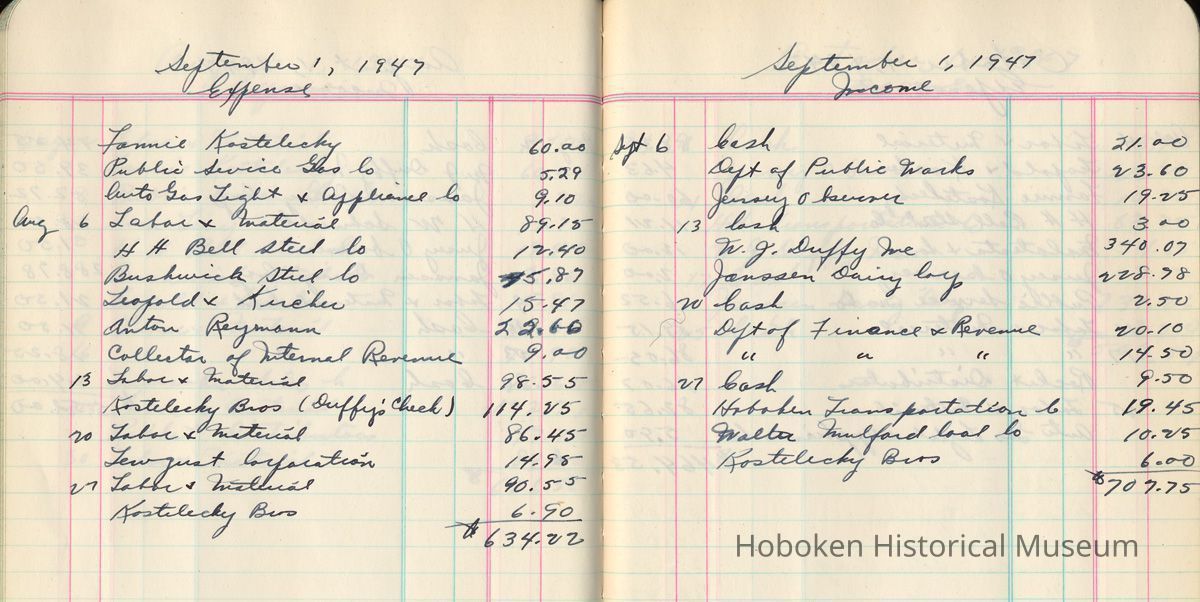 September 1, 1947
Expense
Fannie Kostelecky 60.00
Public Service Gas Co 5.29
Auto Gas Light & Appliance Co 9.10
Aug 6 Labor & Material 89.15
H H Bell Steel Co 12.40
Bushwick Steel Co 5.87
Leopold & Kircher 15.47
Anton Reymann 22.00
Collector of Internal Revenue 9.00
13 Labor & Material 98.55
Kostelecky Bros (Duffy's Check) 114.25
20 Labor & Material 86.45
Corporation 14.95
27 Labor & Material 90.55
Kostelecky Bros 6.90
$ 634.22
September 1, 1947
Income
Sept 6 Cash 21.00
Dept of Public Works 23.60
Jersey Observer 19.25
13 Cash 3.00
N. J. Duffy Inc 340.07
Janssen Dairy Corp 228.78
20 Cash 2.50
Dept of Finance & Revenue 20.10
" " " 14.50
27 Cash 9.50
Hoboken Transportation Co 19.45
Walter Mulford Coal Co 10.25
Kostelecky Bros 6.00
$ 707.75
Hoboken Historical Museum